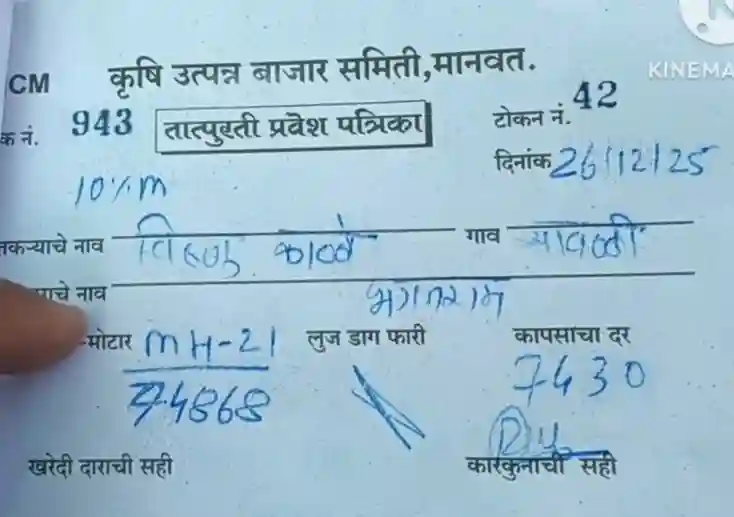 KINEMA
CM कृषि उत्पन्न बाजार समिती,मानवत.
क नं. 943 तात्पुरती प्रवेश पत्रिका टोकन नं. 42
दिनांक 26/12/25
10%m
तकऱ्याचे नाव काळे गाव
चे नाव
मोटार MH-21 लुज डाग फारी कापसाचा दर
4868 7430
खरेदी दाराची सही कारकुनाची सही